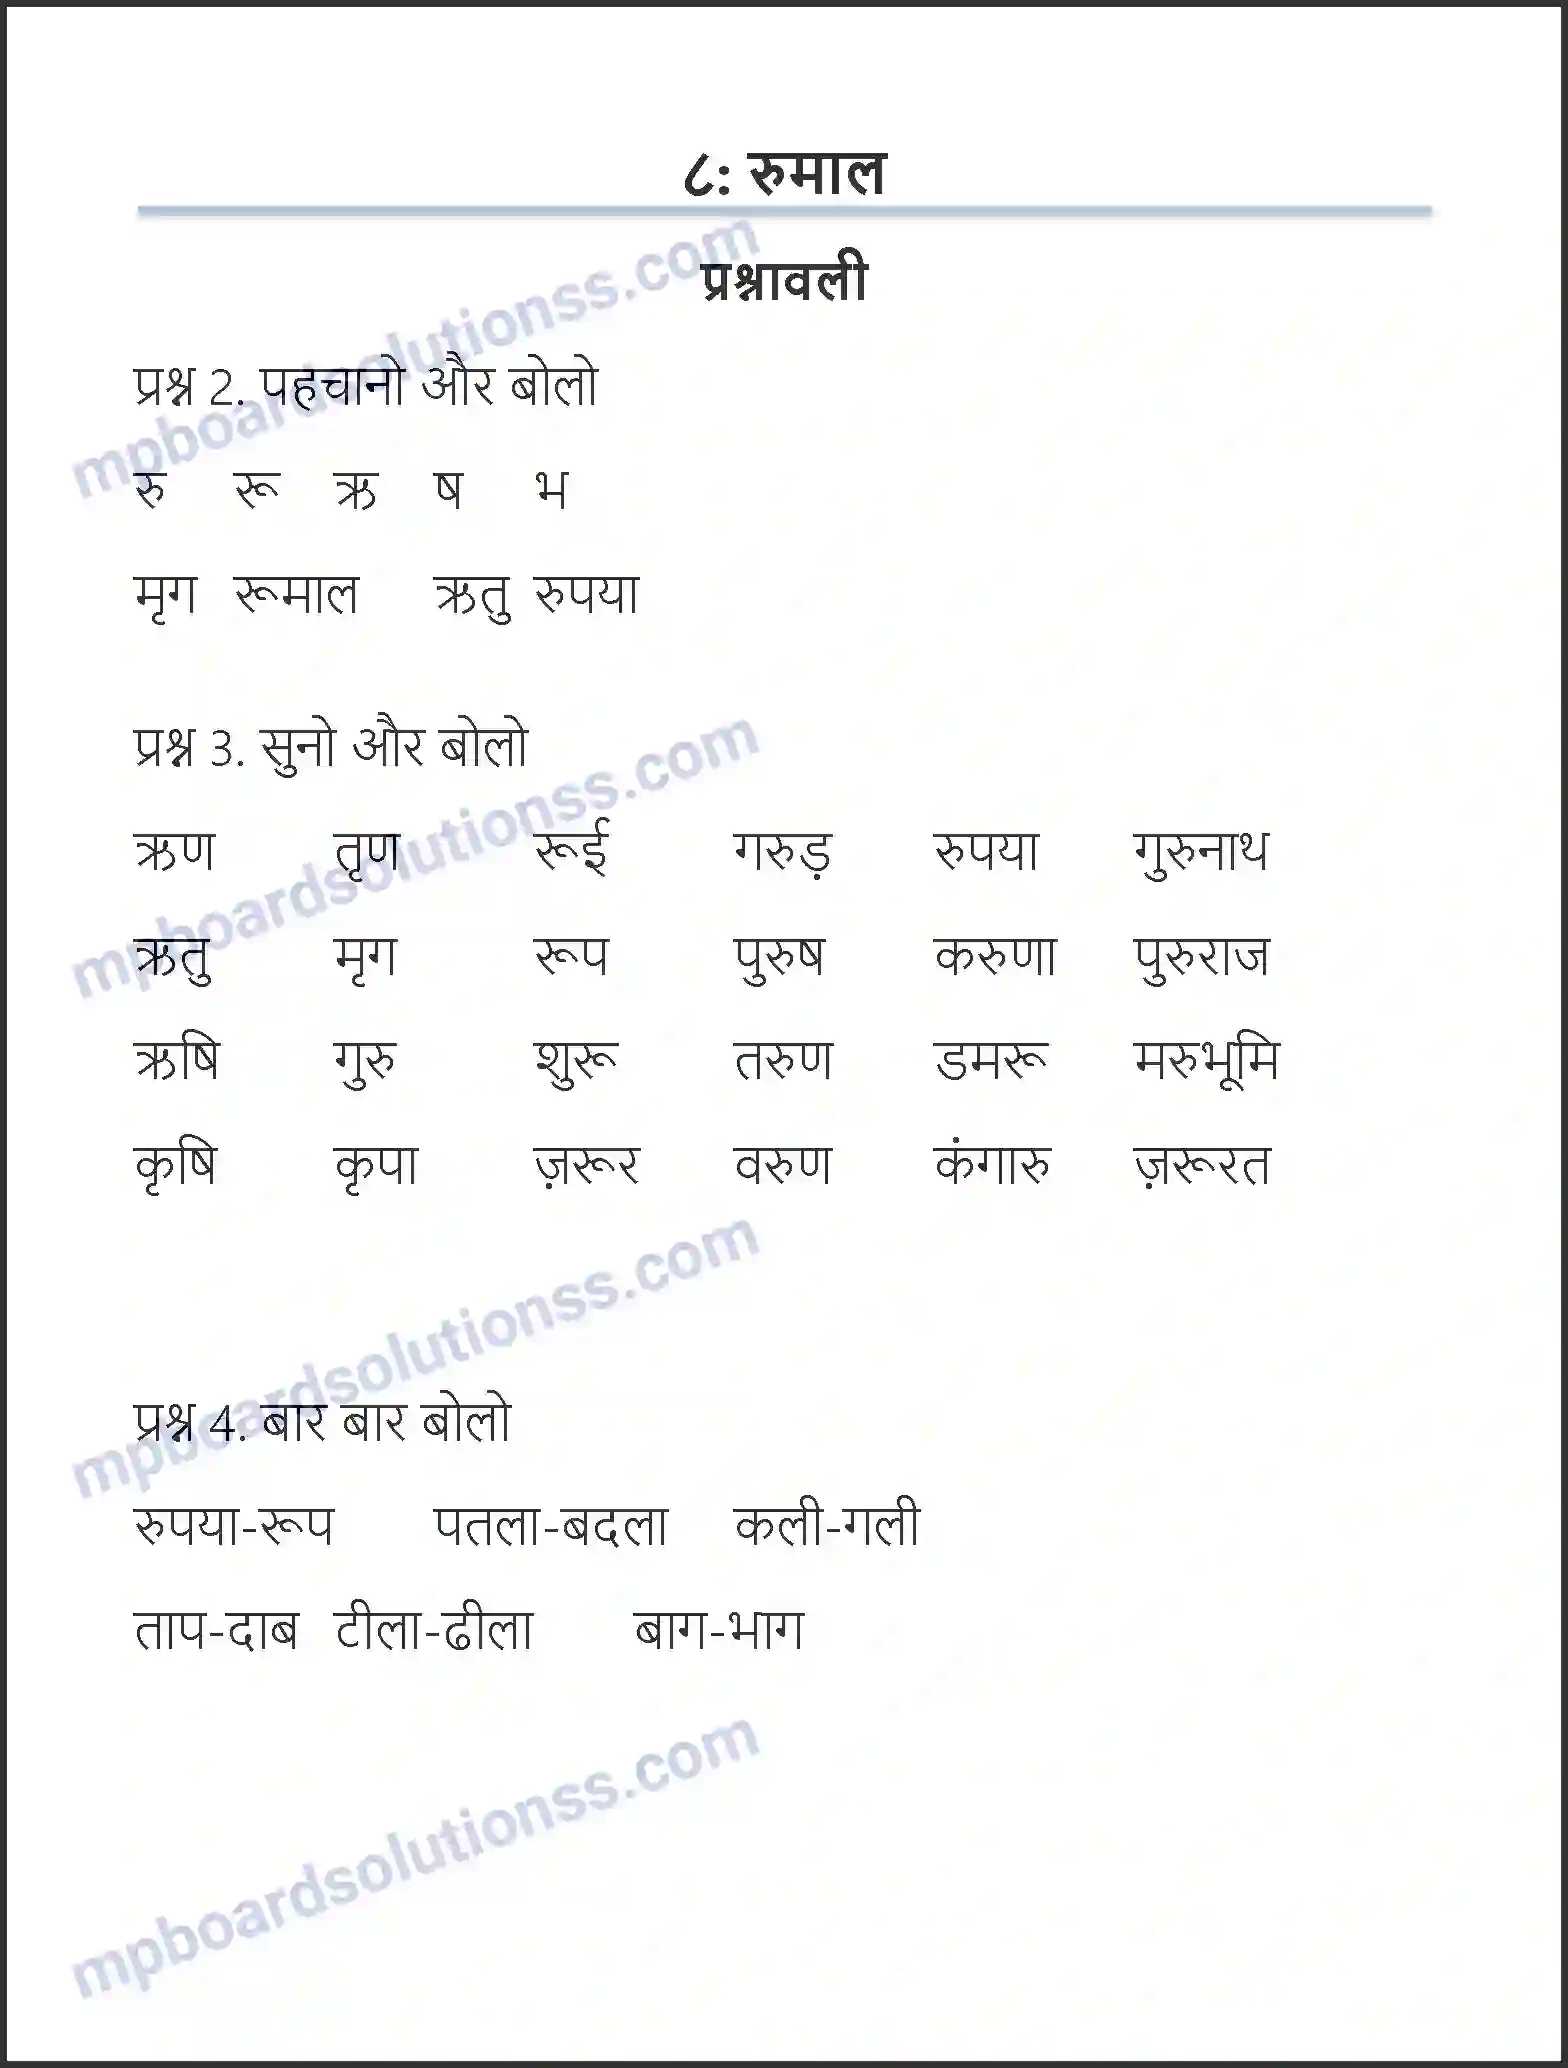 ८: रुमाल
प्रश्नावली
प्रश्न 2. पहचानो और बोलो
रु रू ऋ ष भ
मृग रूमाल ऋतु रुपया
प्रश्न 3. सुनो और बोलो
ऋण तृण रूई गरुड़ रुपया गुरुनाथ
ऋतु मृग रूप पुरुष करुणा पुरुराज
ऋषि गुरु शुरू तरुण डमरू मरुभूमि
कृषि कृपा ज़रूर वरुण कंगारु ज़रूरत
प्रश्न 4. बार बार बोलो
रुपया-रूप पतला-बदला कली-गली
ताप-दाब टीला-ढीला बाग-भाग
mpboardsolutionss.com
mpboardsolutionss.com
mpboardsolutionss.com
mpboardsolutionss.com